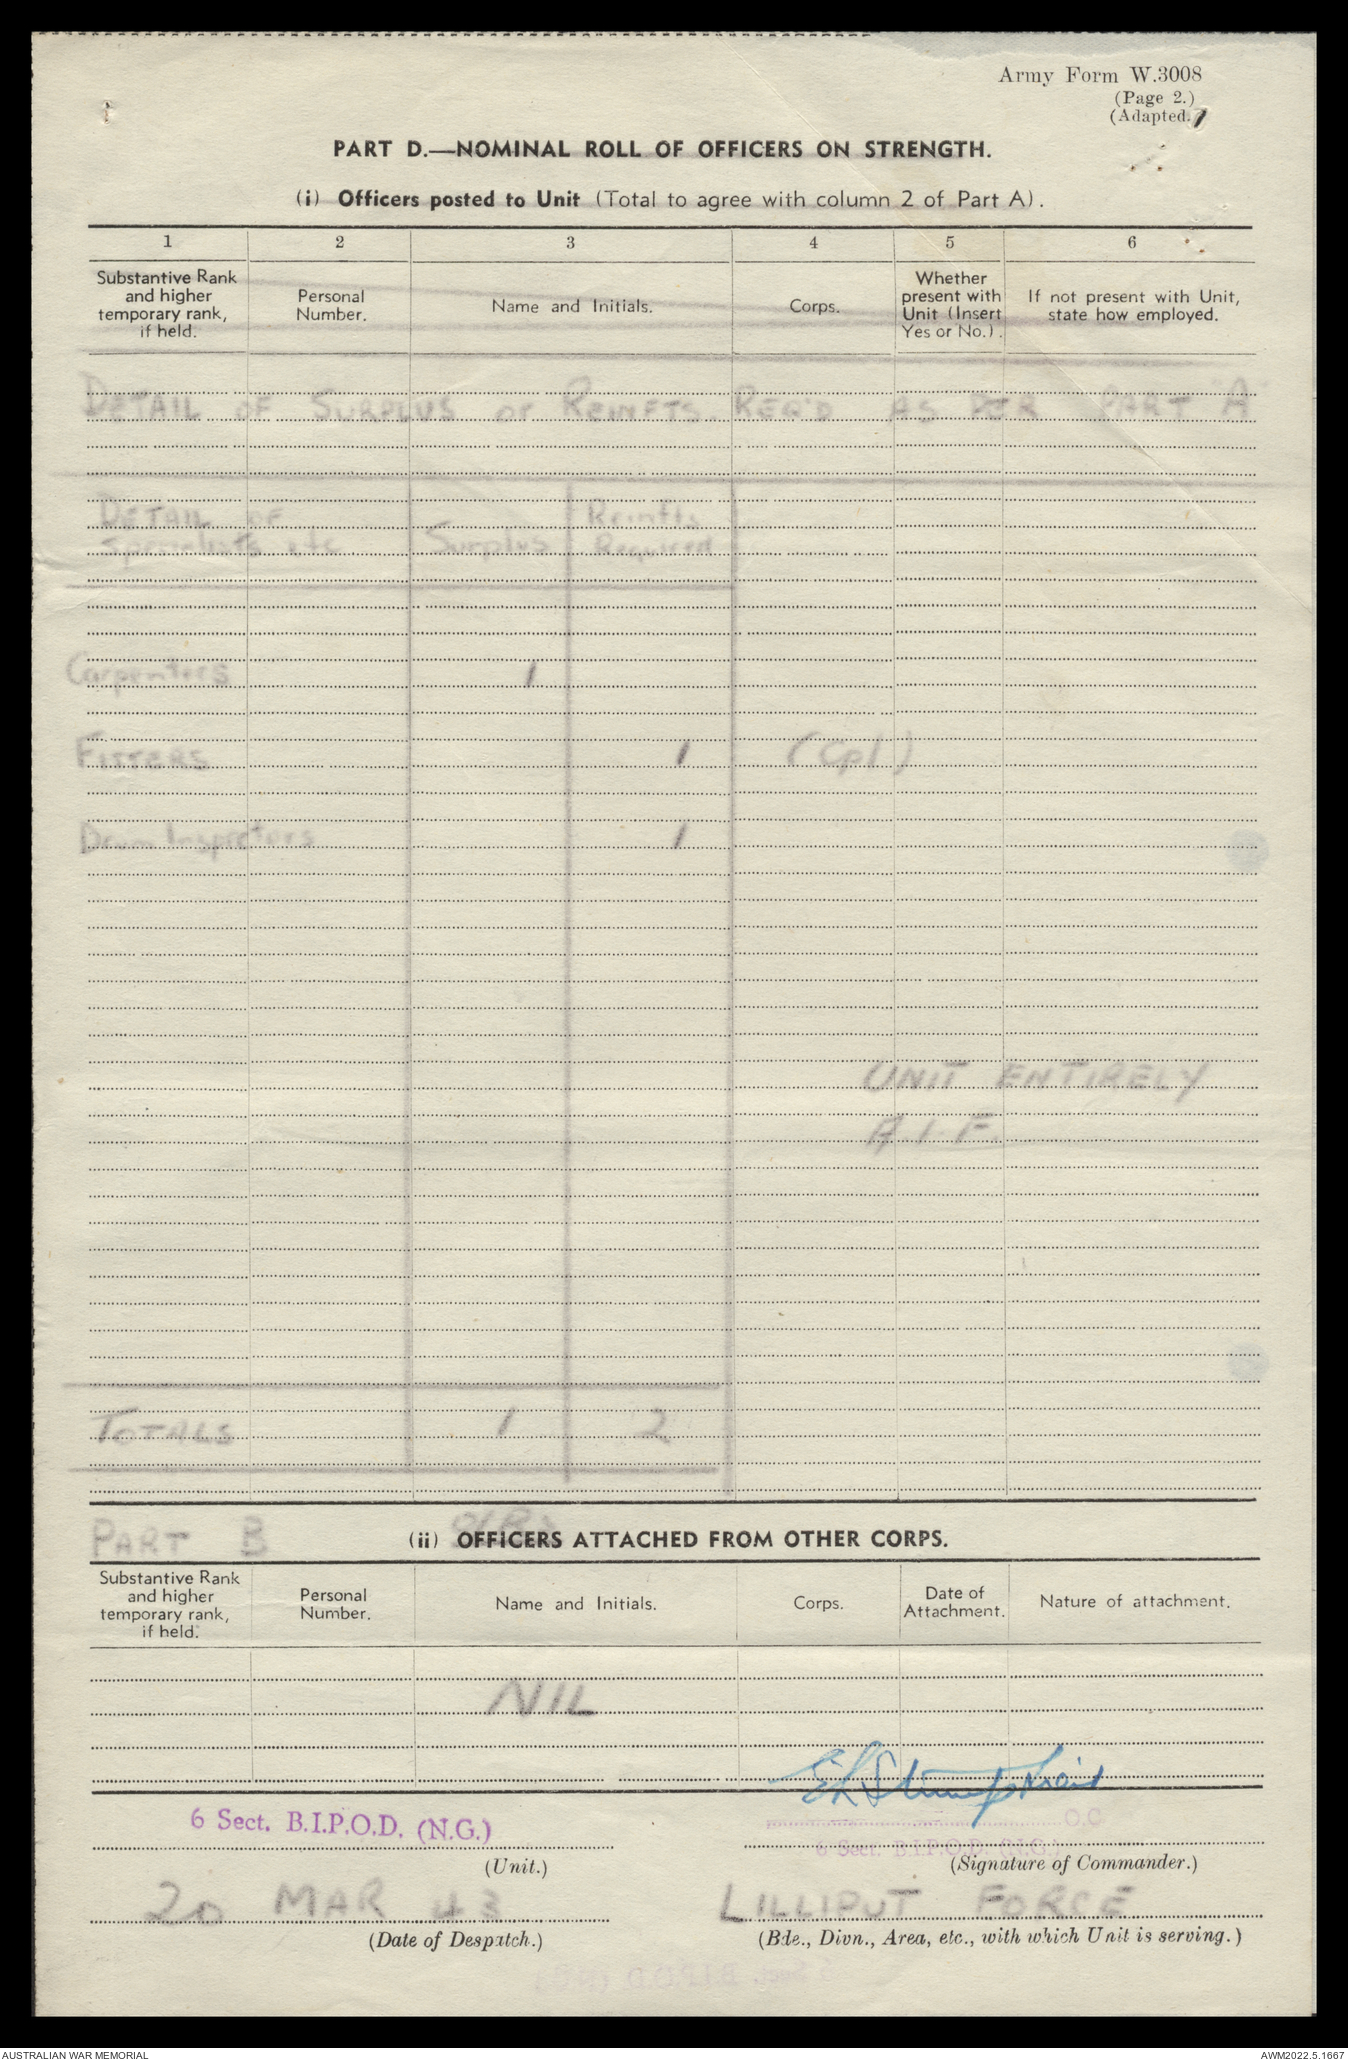 Army Form W.3008
(Page 2.)
(Adapted.)
PART D.—NOMINAL ROLL OF OFFICERS ON STRENGTH.
(i) Officers posted to Unit (Total to agree with column 2 of Part A).
1 2 3 4 5 6
Substantive Rank and higher temporary rank, if held. Personal Number. Name and Initials. Corps. Whether present with Unit (Insert Yes or No.). If not present with Unit, state how employed.
DETAIL OF SURPLUS or REINFTS. REQ'D AS PER PART "A"
DETAIL OF Reinfts
Specialists etc Surplus Required
Carpenters 1
FITTERS 1 (Cpl)
Drum Inspectors 1
UNIT ENTIRELY
A.I.F.
TOTALS 1 2
PART B (ii) OFFICERS ATTACHED FROM OTHER CORPS.
Substantive Rank and higher temporary rank, if held. Personal Number. Name and Initials. Corps. Date of Attachment. Nature of attachment.
NIL
6 Sect. B.I.P.O.D. (N.G.)
O.C
6 Sect. B.I.P.O.D. (N.G.)
(Unit.) (Signature of Commander.)
20 MAR 43 LILLIPUT FORCE
(Date of Despatch.) (Bde., Divn., Area, etc., with which Unit is serving.)
AUSTRALIAN WAR MEMORIAL AWM2022.5.1667